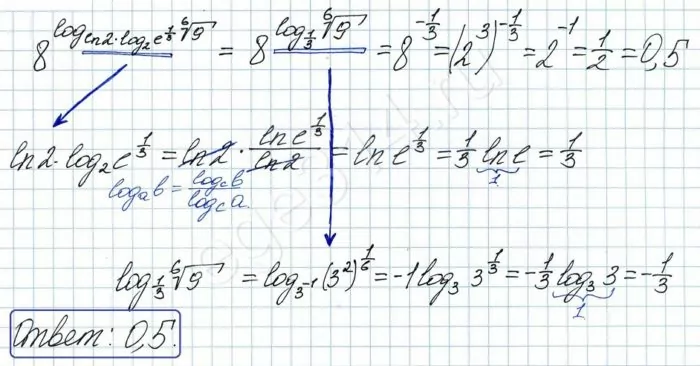 8^(log_(ln2·log₂e^(1/3)) ⁶√9) = 8^(log_(1/3) ⁶√9) = 8^(-1/3) = (2³)^(-1/3) = 2^(-1) = 1/2 = 0,5
ln2·log₂e^(1/3) = ln2 · (ln e^(1/3))/(ln2) = ln e^(1/3) = 1/3 ln e = 1/3
1
log_a b = (log_c b)/(log_c a)
log_(1/3) ⁶√9 = log_(3^(-1)) (3²)^(1/6) = -1 log₃ 3^(1/3) = -1/3 log₃ 3 = -1/3
1
Ответ: 0,5.